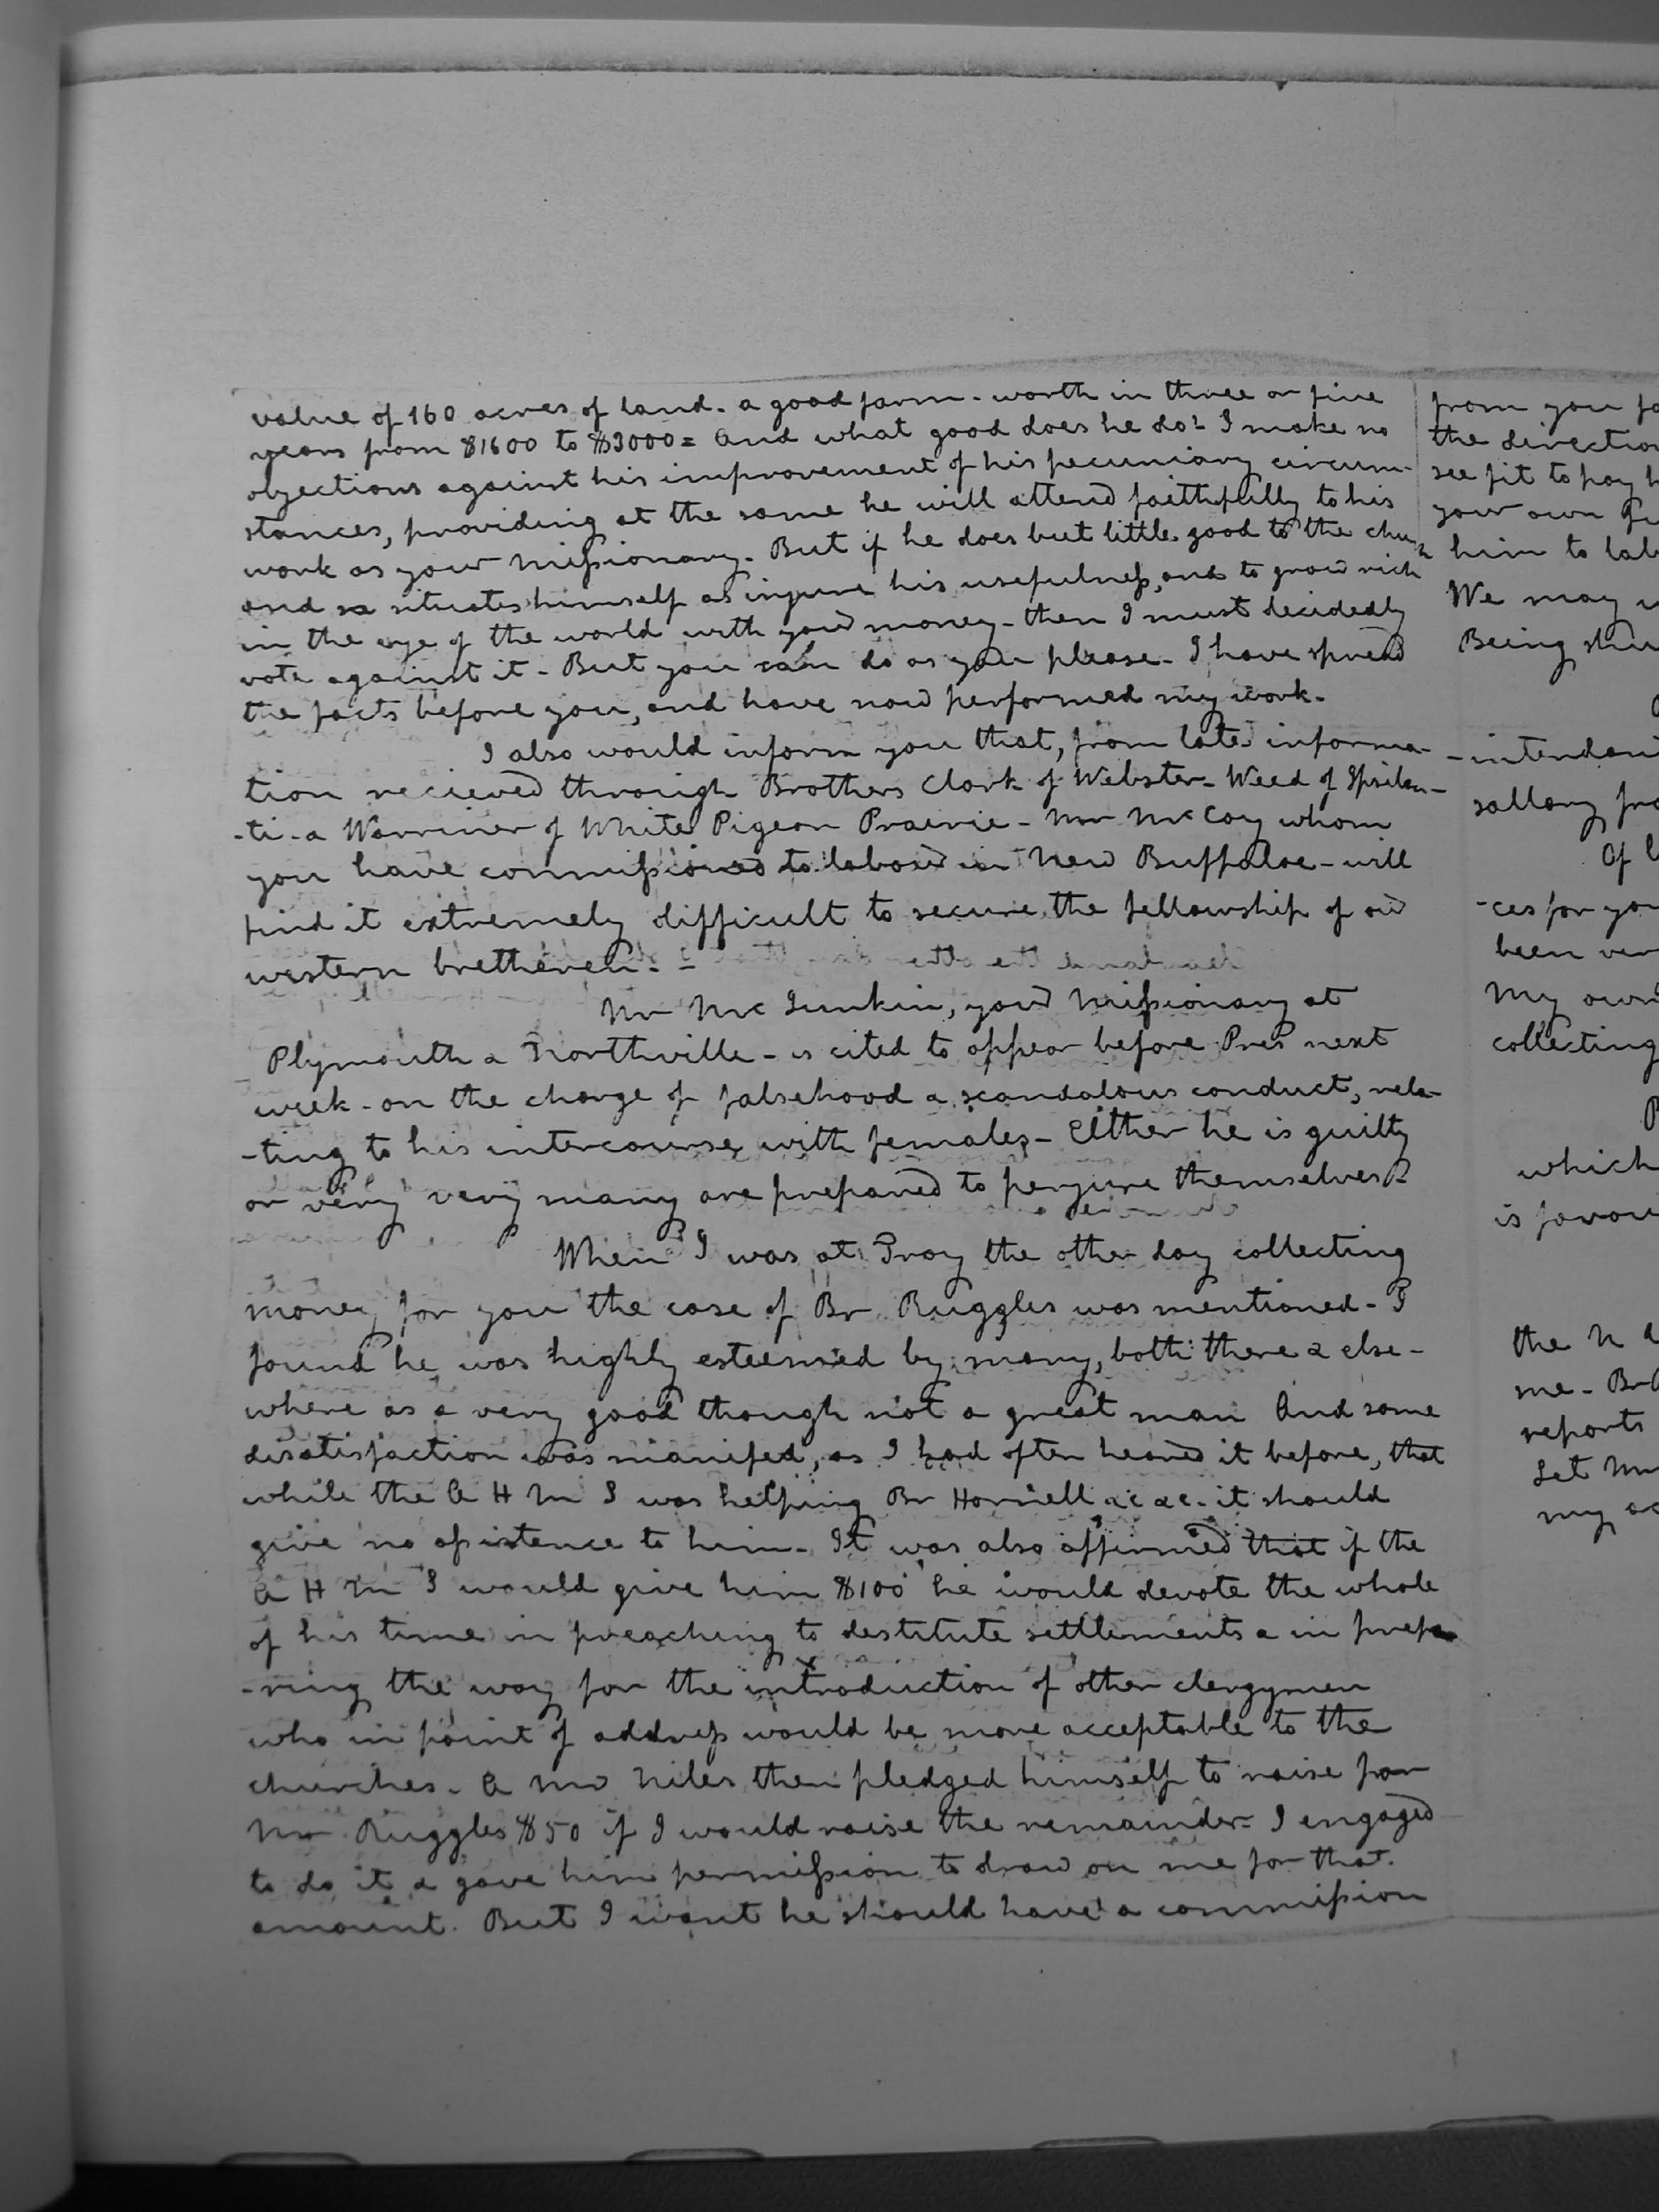 value of 160 acres of land - a good farm - worth in three or five
years from $1600 to $3000 = And what good does he do? I make no
objections against his improvement of his pecuniary circum-
stances, providing at the same he will attend faithfully to his
work as your missionary - But if he does but little good to the
and situates himself as injure his usefulness, and to grow rich
in the eye of the world with your money - then I must decidedly
vote against it - But you can do as you please - I have spread
the facts before you, and have now performed my work -
I also would inform you that, from late informa-
tion recieved through Brothers Clark of Webster - Weed of Ypsilan-
-ti - & Warriner of White Pigeon Prairie - Mr McCoy whom
you have commissioned to labour in New Buffaloe - will
find it extremely difficult to secure the fellowship of our
western bretheren. -
Mr Mc Junkin, your missionary at
Plymouth & Northville - is cited to appear before Pres next
week - on the charge of falsehood & scandalous conduct, rela-
-ting to his intercourse with females - Either he is guilty
or very very many are prepared to perjure themselves -
When I was at Troy the other day collecting
money for you the case of Br Ruggles was mentioned - I
found he was highly esteemed by many, both there & else-
where as a very good though not a great man And some
disatisfaction was manifed, as I had often heard it before, that
while the A H M S was helping Br Hornell &c &c - it should
give no assistence to him - It was also affirmed that if the
A H M S would give him $100 he would devote the whole
of his time in preaching to destitute settlements & in prepa
-ring the way for the introduction of other clergymen
who in point of address would be more acceptable to the
churches - A Mr Niles then pledged himself to raise for
Mr Ruggles $50 if I would raise the remainder - I engaged
to do it & gave him permission to draw on me for that
amount. But I want he should have a commission
from you
the direction
see fit to pay
your own
him to
We may
Being
-intendant
sallary
Of
-ces for you
been
My own
collecting
which
is
the N
me - Br
reports
Let
my